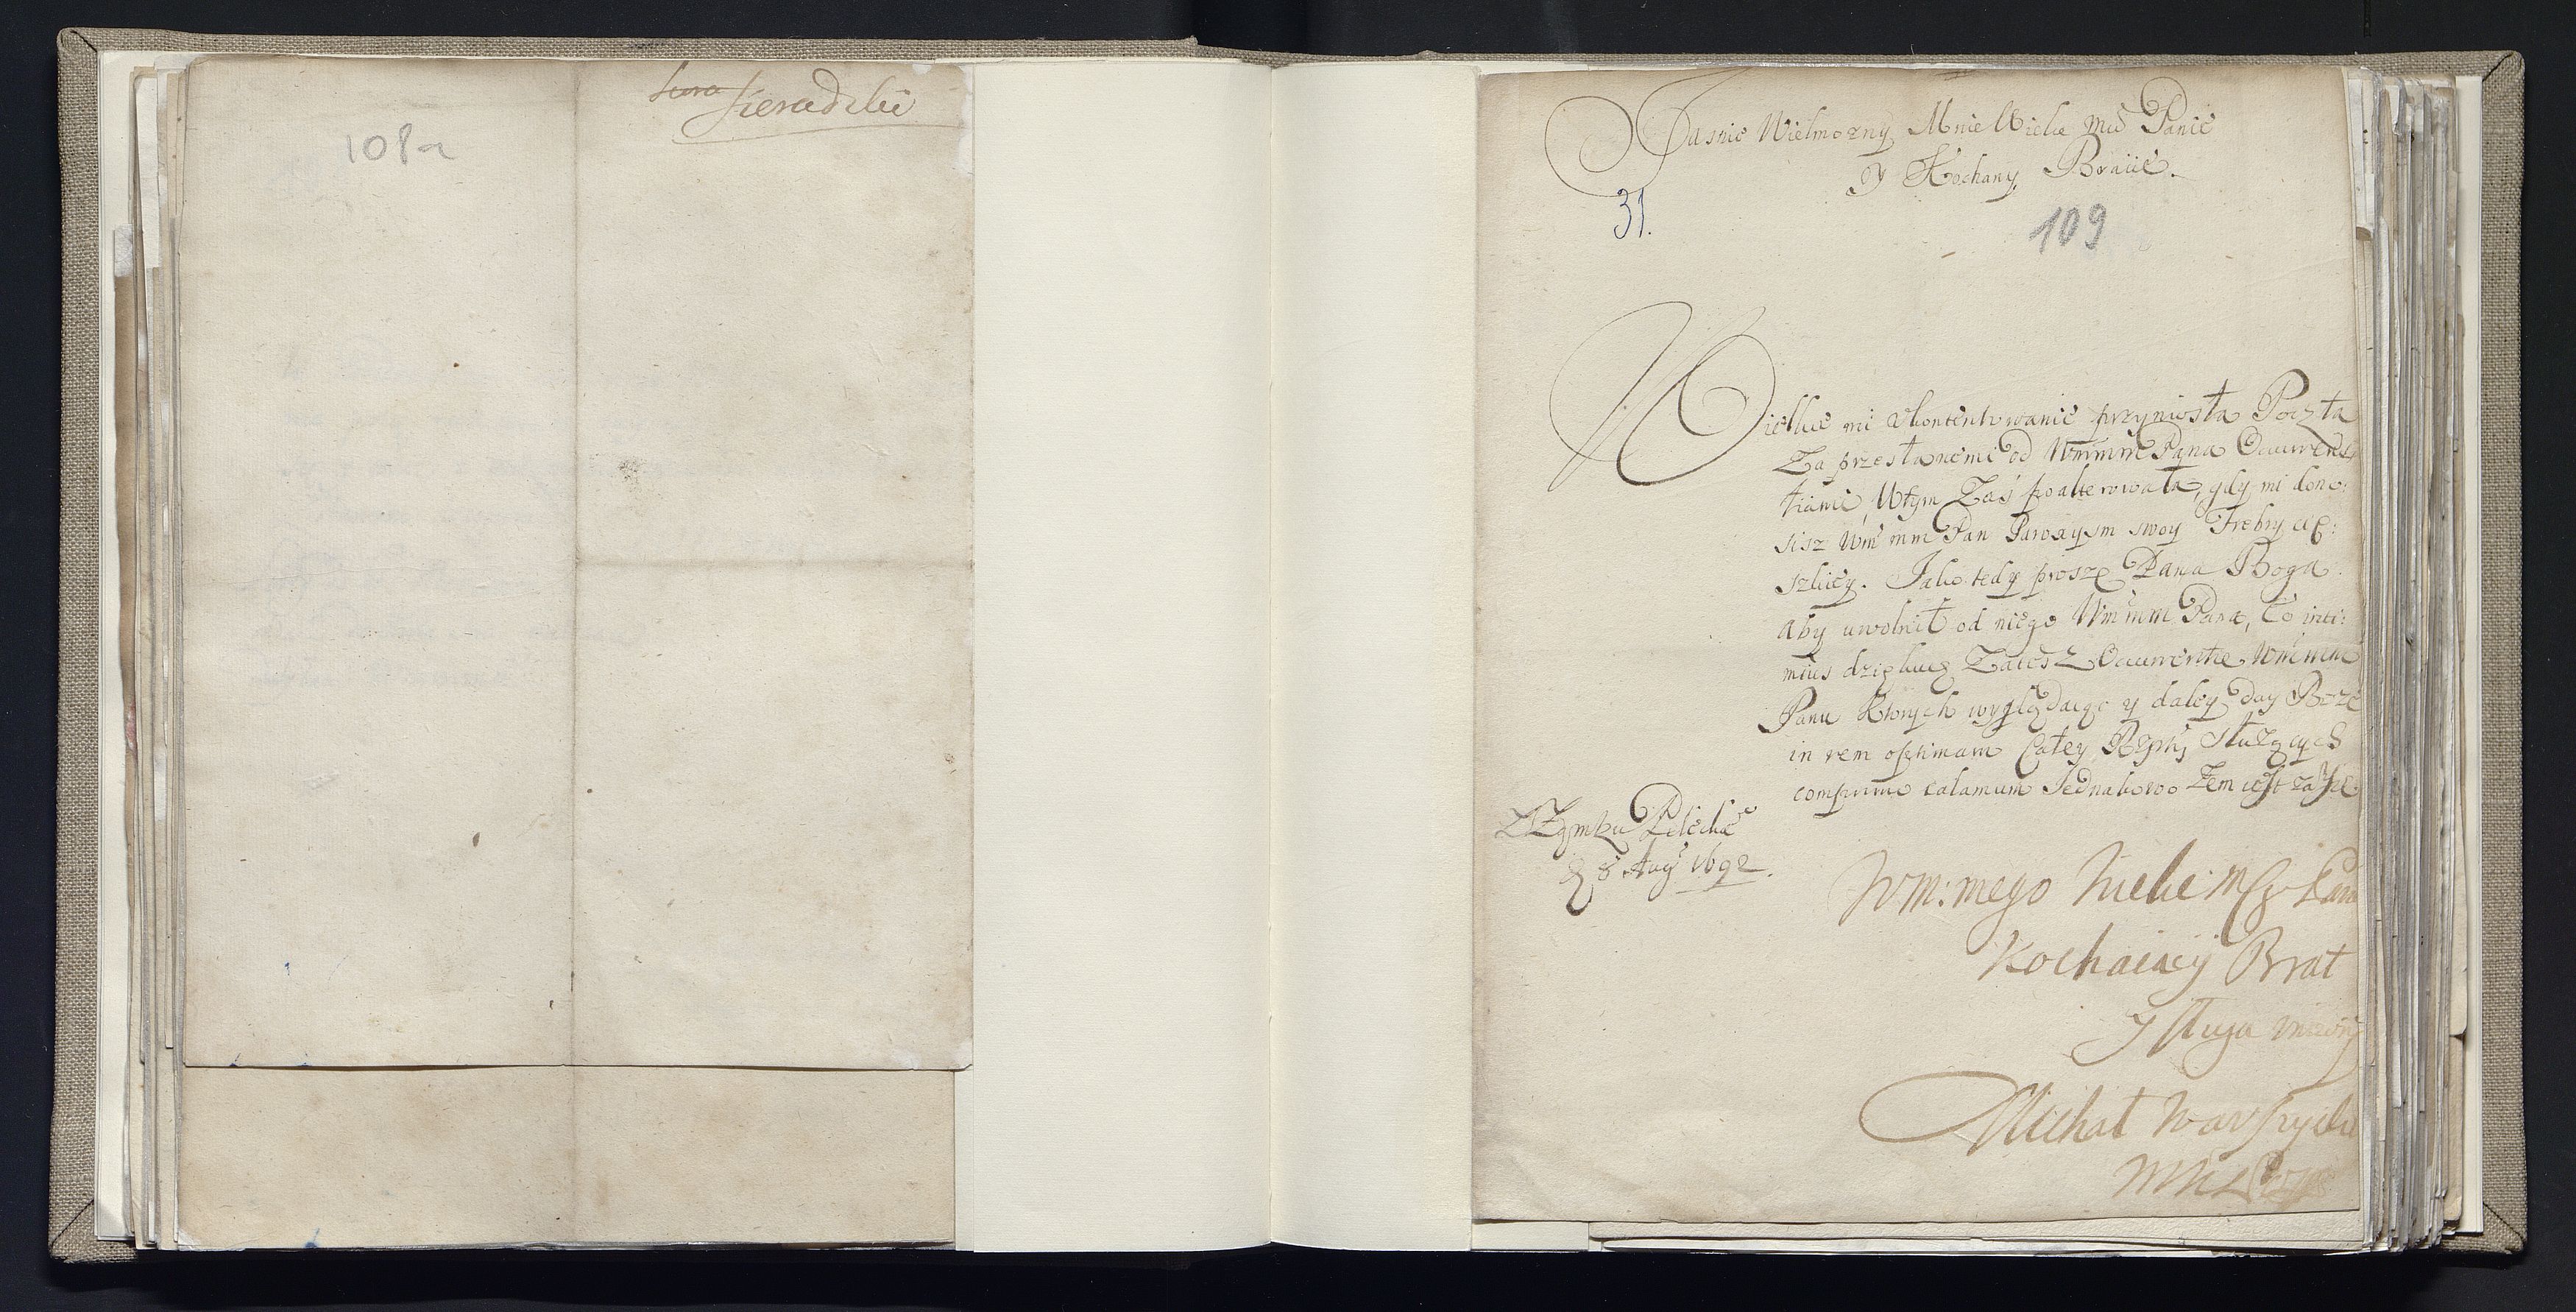 Sieradzkie
108a
Jasnie Wielmozny Mnie Wielce Mci Panie
Y Kochany Bracie.
31.
109
Wielkie mi ukontentowanie przyniosła Poczta
Za przesłanemi od Wmmm Pana Occurren
tiami, Wtym Zas poalterowała, gdy mi dono:
sisz Wm mm Pan Paroxysm swoy Frebry cięs:
szkiey. Jako tedy proszę Pana Boga
aby uwolnił od niego Wm mm Pana, to inti:
mius dziękuię Zaiesz Occurrentie Wm mm
Panu Ktorych wyglądaiąc y daley day Boze
in rem optimam Całey Rzptey Służących
comprimo calamum Jednakowo Zem iest zawsze
Z Zamku
D 8 Aug 1692.
WM: mego Wielce Mg Pana
Kochaiący Brat
Y sługa
Michał Warszycki